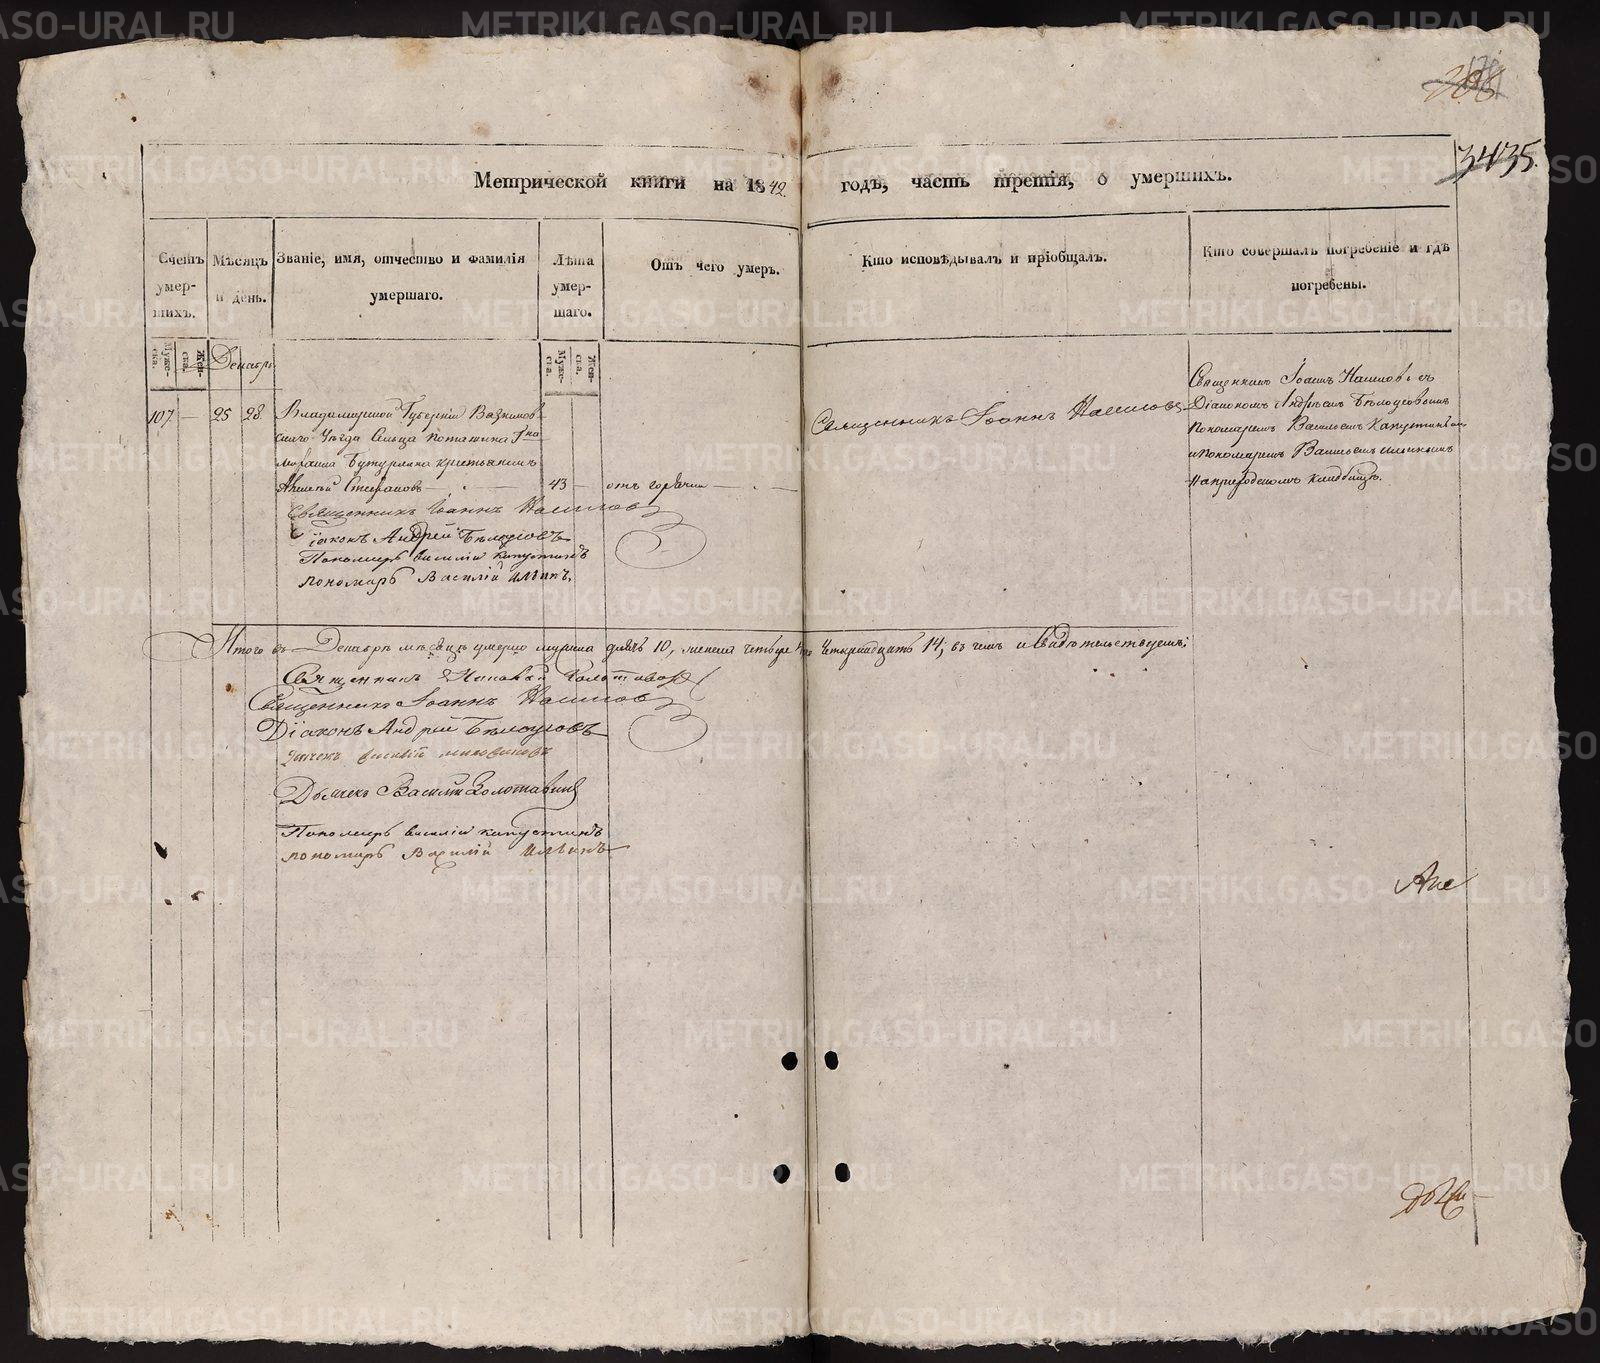 METRIKI.GASO-URAL.RU
3435.
Метрической книги на 1842 годъ, часть третія, о умершихъ.
Счетъ умер-
шихъ.
Мѣсяцъ
и день.
Званіе, имя, отчество и фамилія
умершаго.
Лѣта
умер-
шаго.
Отъ чего умеръ.
Кто исповѣдывалъ и пріобщалъ.
Кто совершалъ погребеніе и гдѣ
погребены.
Муже-
ска.
Жен-
ска.
Декабрь
Муже-
ска.
Жен-
ска.
107 — 25 28
Владимирской Губерніи Вязников-
скаго Уѣзда Сельца Поташина Гна
Бутурлина крестьянинъ
Стефановъ — 43 — отъ горячки —
Священникъ Іоаннъ
Священникомъ Іоанномъ съ
Діакономъ Андреемъ Бѣлоусовымъ
Пономаремъ Васильемъ Капустинымъ
и пономаремъ Васильемъ Ильинымъ
На приходскомъ кладбищѣ.
Священникъ Іоаннъ
Діаконъ Андрей Бѣлоусовъ
Пономарь Василій Капустинъ
пономарь Василій Ильинъ.
Итого въ Декабрѣ мѣсяцѣ умерло мужеска десять 10, женска четыре 4 четырнадцать 14; въ чемъ и свидѣтельствуемъ:
Священникъ
Священникъ Іоаннъ
Діаконъ Андрей Бѣлоусовъ
Дьячекъ Василій
Дьячекъ Василій Золотавинъ
Пономарь Василій Капустинъ
пономарь Василій Ильинъ